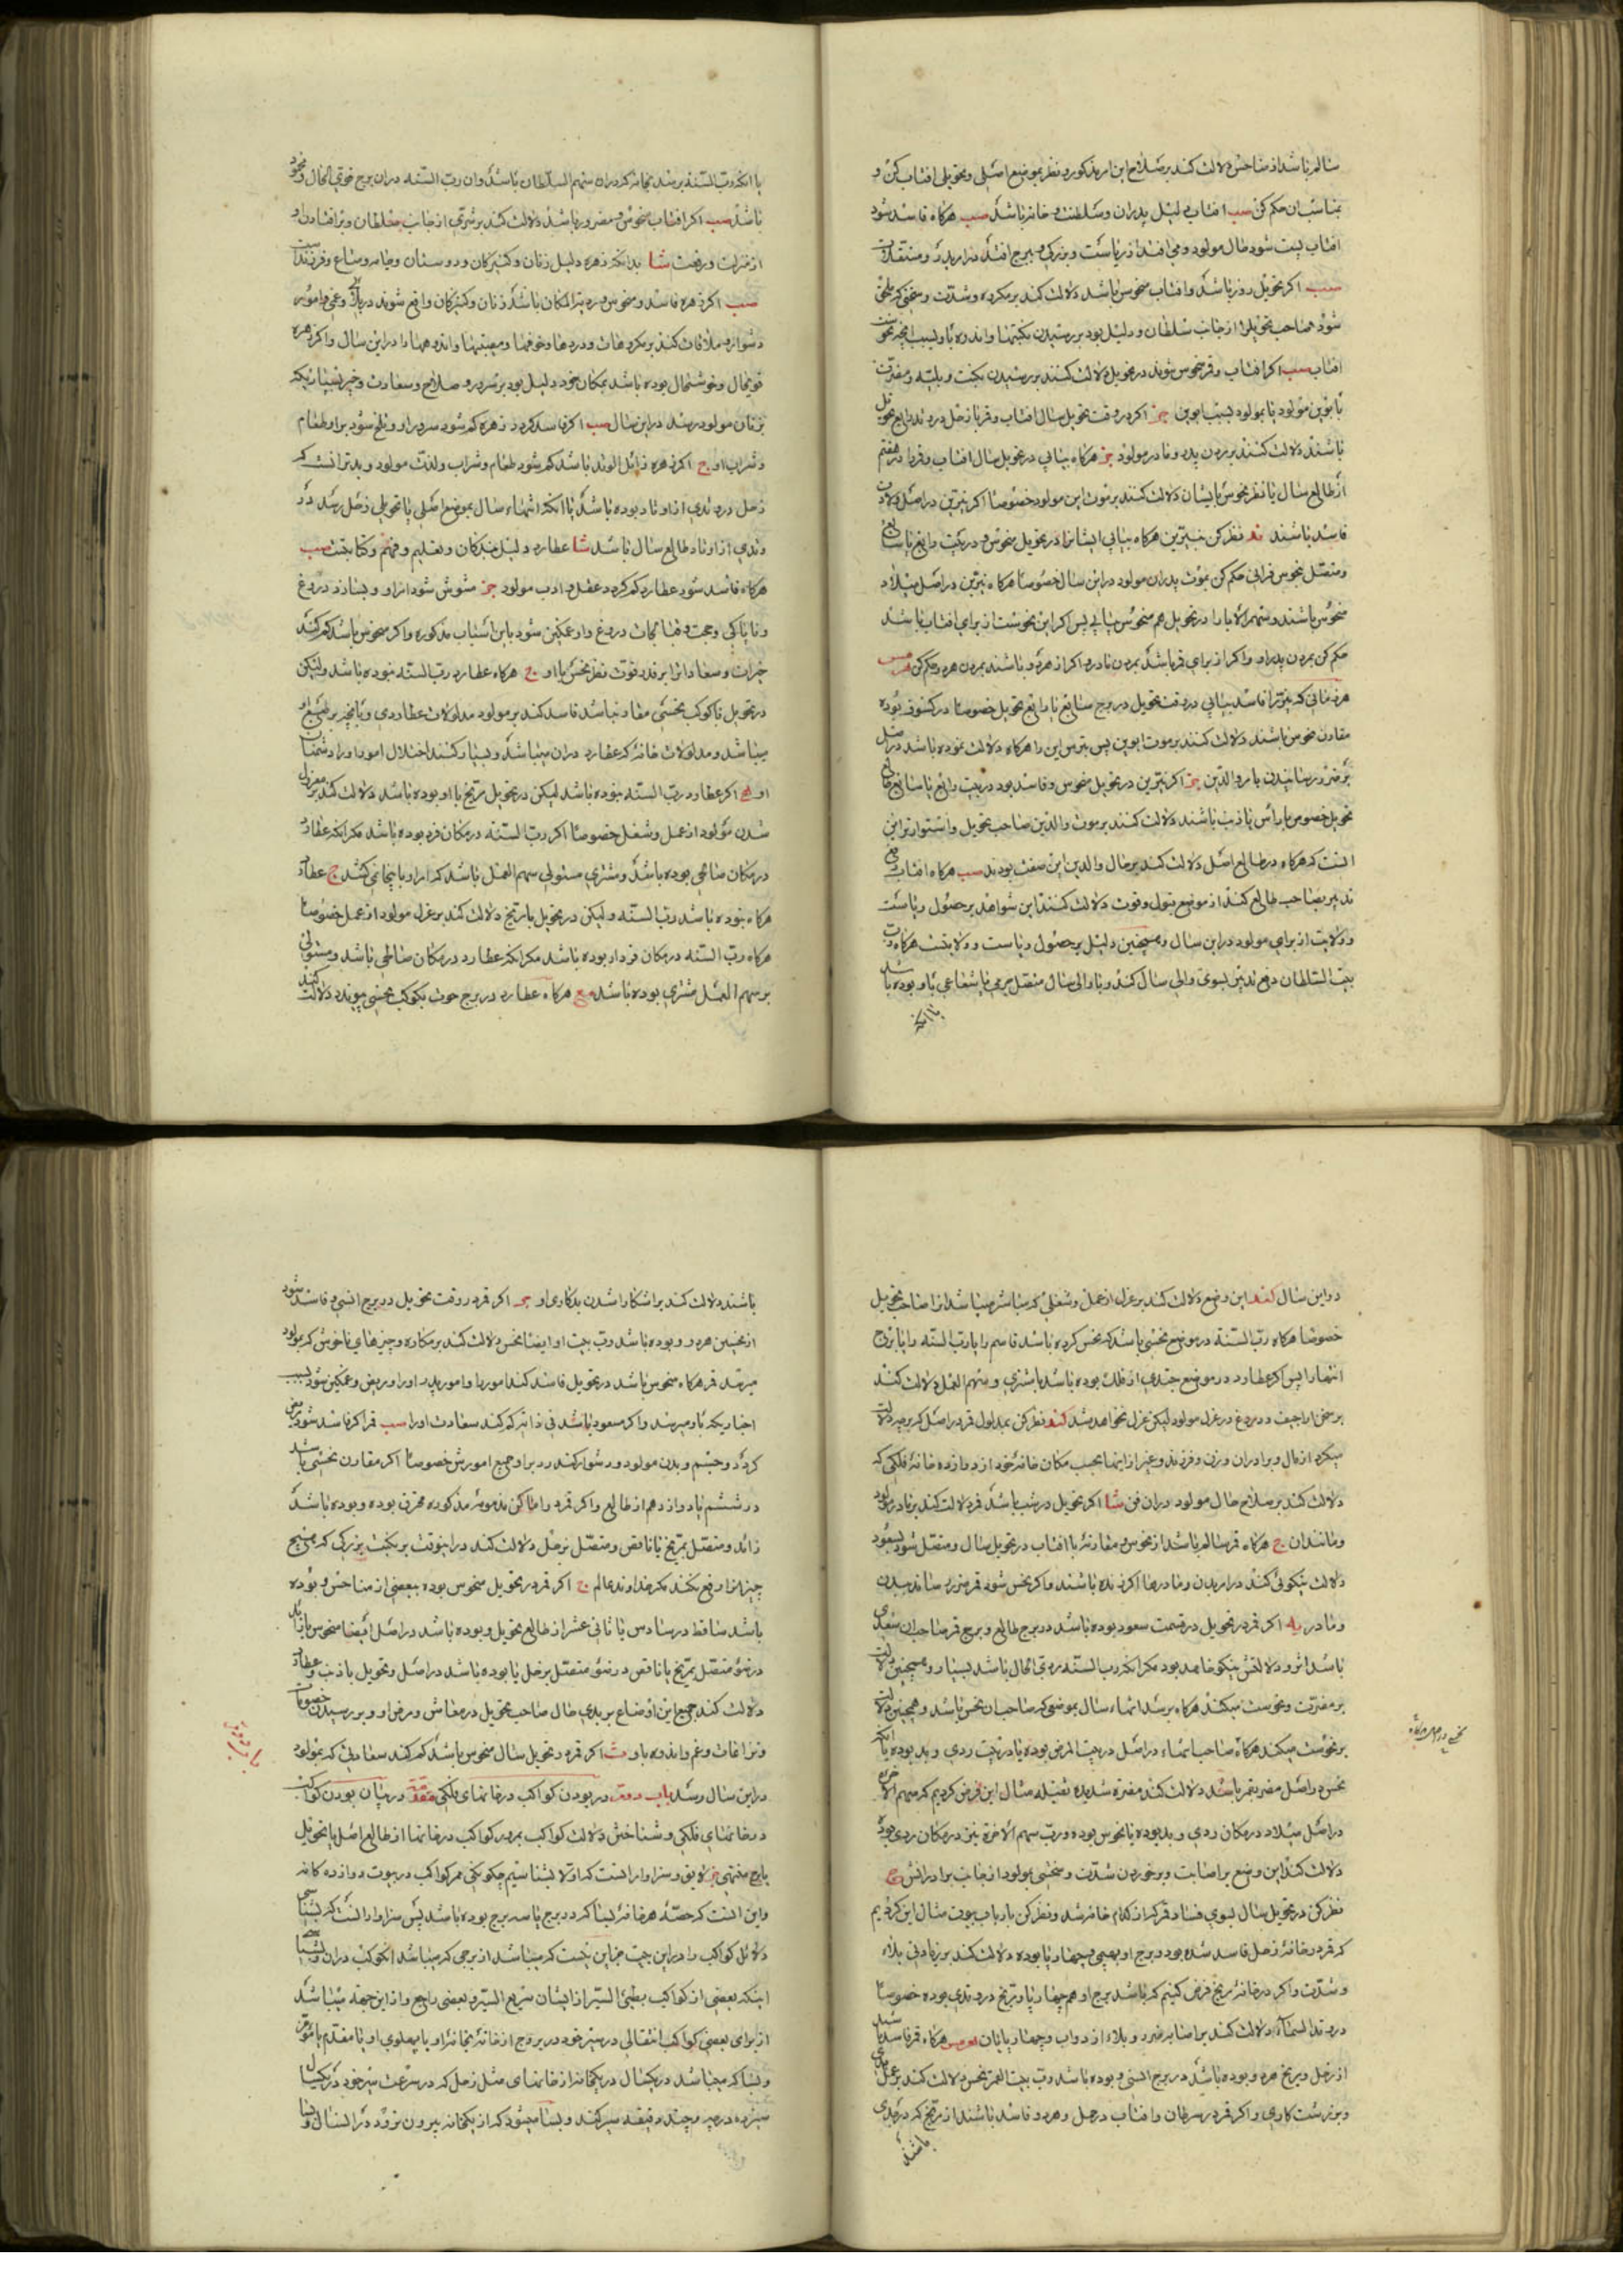 سالم باشد از مناحس دلالت کند بر صلاح این امر مذکور و نظر بموضع اصلی و تحویلی افتاب کن و
بمناسبت ان حکم کن سب افتاب دلیل پدران و سلطنت و خانه باشد سب هرکاه فاسد شود
افتاب پست شود حال مولود و می افتد از ریاست و بزرکی و برج افتد
سب اکر تحویل روز باشد و افتاب منحوس باشد دلالت کند بر مکروه و شدت و سختی که ملحق
شود صاحب تحویل را از جانب سلطان و دلیل بود بر رسیدن نکبتها و اندوه باو بسبب
افتاب سب اکر افتاب و قمر منحوس شوند در تحویل دلالت کنند بر رسیدن نکبت و بلیه و مضرت
بابوین مولود یا بمولود بسبب ابوین ج اکر در وقت تحویل سال افتاب و قمر با زحل در وتد رابع تحویل
باشند دلالت کنند بر مردن پدر و مادر مولود ج هرکاه بیابی در تحویل سال افتاب و قمر را در هفتم
از طالع سال با نظر نحوس بایشان دلالت کنند بر موت ابن مولود خصوصا اکر نیرین در اصل ولادت
فاسد باشند ند نظر کن بنیرین هرکاه بیابی ایشانرا در تحویل منحوس و در بیت رابع یا سابع
و متصل بنحوس فرانی حکم کن بموت پدران مولود در این سال خصوصا هرکاه نیرین در اصل میلاد
منحوس باشند و سهم الاباء را در تحویل هم منحوس بیابی پس اکر این نحوست از برای افتاب باشد
حکم کن بمردن پدر او و اکر از برای قمر باشد بمردن مادر و اکر از هر دو باشند بمردن هر دو حکم کن
هر زمانی که نیرین را فاسد بیابی در وقت تحویل در برج سابع یا رابع تحویل خصوصا در کسوف بوده
مقارن نحوس باشند دلالت کنند بر موت ابوین پس بترس این را هرکاه دلالت نموده باشد در اصل
بر ضرر رسانیدن بامر والدین ج اکر نیرین در تحویل منحوس و فاسد بود در بیت رابع یا سابع
تحویل خصوص با راس یا ذنب باشند دلالت کنند بر موت والدین صاحب تحویل و استوارتر این
است که هرکاه در طالع اصل دلالت کند بر حال والدین این صفت بود بد سب هرکاه افتاب دفع
تدبیر بصاحب طالع کند از موضع قبول و قوت دلالت کنند این شواهد بر حصول ریاست
و ولایت از برای مولود در این سال و همچنین دلیل بر حصول ریاست و ولایتست هرکاه رب
بیت السلطان دفع تدبیر بسوی والی سال کند و با والی سال متصل باشعاعی باو بوده باشد
یا انکه
یا انکه رب السنه برسد بخانه که در ان سهم السلطان باشد و ان رب السنه در ان برج خوش حال و مسعود
باشد سب اکر افتاب منحوس و مضرور باشد دلالت کند بر شری از جانب سلطان و بر افتادن او
از منزلت و رفعت شا بدانکه زهره دلیل زنان و کنیزکان و دوستان و جامه و متاع و فرزندانست
سب اکر زهره فاسد و منحوس و بد المکان باشد زنان و کنیزکان واقع شوند در بلا و غمی و امور
دشوار و ملاقات کنند بر مکروهات و دردها و خوفها و مصیبتها و اندوهها را در این سال و اکر زهره
قویحال و خوشحال بوده باشد بمکان خود دلیل بود بر سرور و صلاح و سعادت و خیر بسیار که
بزنان مولود رسد در این سال سب اکر فاسد کردد زهره کم شود سرور او و تلخ شود بر او طعام
و شراب او ج اکر زهره زایل الوتد باشد کم شود طعام و شراب و لذت مولود و بدتر انست که
زحل در وتدی از اوتاد بوده باشد یا انکه انتهاء سال بموضع اصلی یا تحویلی زحل رسد در
وتدی از اوتاد طالع سال باشد شا عطارد دلیل بندکان و تعلیم و فهم و کتابتست سب
هرکاه فاسد شود عطارد کم کردد عقل و ادب مولود ج مشوش شود امر او و بسازد دروغ
و ناپاکی و حجت و نامهای دروغ و او غمکین شود باین اسباب مذکوره و اکر منحوس باشد کم کند
خیرات و سعادات را بر قدر قوت نظر نحس باو ج هرکاه عطارد رب السنه نبوده باشد ولیکن
در تحویل با کوکب نحسی مقارن باشد فاسد کند بر مولود مدلولات عطاردی و
میباشد و مدلولات خانه که عطارد در ان میباشد و بسیار کنند اختلال امور او را و دشمنان
او ج اکر عطارد رب السنه نبوده باشد لیکن در تحویل مریخ با او بوده باشد دلالت کند بر معزول
شدن مولود از عمل و شغل خصوصا اکر رب السنه در مکان فرد بوده باشد مکر انکه عطارد
در مکان صالحی بوده باشد و مشتری مستولی سهم العمل باشد که
هرکاه نبوده باشد رب السنه و لیکن در تحویل با مریخ دلالت کند بر عزل مولود از عمل خصوصا
هرکاه رب السنه در مکان فرد او بوده باشد مکر انکه عطارد در مکان صالحی باشد و مستولی
بر سهم العمل مشتری بوده باشد هرکاه عطارد در برج حوت بکوکب نحسی پیوندد دلالت کند
در این سال کند این وضع دلالت کند بر عزل از عمل و شغلی که مباشر میباشد انرا صاحب تحویل
خصوصا هرکاه رب السنه در موضع نحسی باشد که نحس کرده باشد قاسم را یا رب السنه را یا برج
انتها را پس اکر عطارد در موضع جیدی از فلک بوده باشد با مشتری و سهم العمل دلالت کند
بر سخن اراجیف و دروغ در عزل مولود لیکن عزل نخواهد شد کند نظر کن بمدلول قمر در اصل که بر چه دلالت
میکرد از مال و برادران و زن و فرزند و غیر از اینها بحسب مکان خانه خود از دوازده خانه فلکی که
دلالت کند بر صلاح حال مولود در ان فن شا اکر تحویل در شب باشد قمر دلالت کند بر مادر مولود
و مانند ان ج هرکاه قمر سالم باشد از نحوس و مقارنه با افتاب در تحویل سال و متصل شود بسعود
دلالت نیکوئی کند در امر بدن و مادرها اکر زنده باشند و اکر نحس شود قمر ضرر رساند ببدن
و مادر یه اکر قمر در تحویل در قسمت سعود بوده باشد در برج طالع و برج قمر صاحب ان سعدی
باشد اثر و دلالتش نیکو خواهد بود مکر انکه رب السنه ردی الحال باشد بسیار و همچنین دلالت
بر مضرت و نحوست میکند هرکاه برسد انتهاء سال بموضعی که صاحب ان نحس باشد و همچنین دلالت
بر نحوست میکند هرکاه صاحب انتهاء در اصل در بیت المرض بوده یا در بیت ردی و بد بوده یا انکه
نحس در اصل مضر بقمر باشد دلالت کند مضره شدیده ثقیله مثال این فرض کردیم که سهم الاخوه
در اصل میلاد در مکان ردی و بد بوده یا منحوس بوده و رب سهم الاخوة نیز در مکان ردی بوده
دلالت کند این وضع بر اصابت و برخوردن شدت و سختی بمولود از جانب برادرانش ج
نظر کن در تحویل سال بسوی فساد قمر که از کدام خانه شد و نظر کن بارباب بیوت مثال این کردیم
که قمر در خانه زحل فاسد شده بود و برج او بهیمی و چهارپا بوده دلالت کند بر زیادتی بلاء
و شدت و اکر در خانه مریخ فرض کنیم که باشد برج او هم چهارپا و مریخ در وتدی بوده خصوصا
در وتد السماء دلالت کند بر اصابه ضرر و بلاء از دواب و چهارپایان هرکاه قمر فاسد باشد
از زحل و مریخ هر دو بوده باشد در برج انسی و بوده باشد رب بیت القمر نحس دلالت کند بر عمل بدی
و بر زشت کاری و اکر قمر در سرطان و افتاب در حمل و هر دو فاسد باشند از مریخ که در جدی
باشند
باشند دلالت کند بر اشکارا شدن بدکاری او ج اکر قمر در وقت تحویل در برج انسی و فاسد شود
از نحسین هر دو و بوده باشد رب بیت او ایضا نحس دلالت کند بر مکاره و چیزهای ناخوش که بمولود
میرسد قمر هرکاه منحوس باشد در تحویل فاسد کند امور ما و امور پدر او را و مریض و غمکین شود بسبب
اخباری که باو میرسد و اکر مسعود باشد فی ذاته کم کند سعادت او را سب قمر اکر فاسد شود مریض
کردد و چشم و بدن مولود و دشوار کند رد بر او جمیع امورش خصوصا اکر مقارن نحسی باشد
در ششم یا دوازدهم از طالع و اکر قمر در اماکن مذمومه مذکوره محترق بوده و بوده باشد
زائد و متصل بمریخ یا ناقص و متصل بزحل دلالت کند در اینوقت بر نکبت بزرکی که هیچ
چیز انرا دفع نکند مکر خداوند عالم ج اکر قمر در تحویل منحوس بوده ببعضی از مناحس و بوده
باشد ساقط در سادس یا ثانی عشر از طالع تحویل و بوده باشد در اصل ایضا منحوس یا زائد
در ضو متصل بمریخ یا ناقص در ضو متصل بزحل یا بوده باشد در اصل و تحویل با ذنب و عطارد
دلالت کند جمیع این اوضاع بر بدی حال صاحب تحویل در معاش و مرض او و بر رسیدن خصومات
و نزاعات و غم و اندوه باو ث اکر قمر در تحویل سال منحوس باشد کم کند سعادتی که بمولود
در این سال رسد باب دوم در بودن کواکب در خانهای فلکی مقدمه در بیان بودن کواکب
در خانهای فلکی و شناختن دلالت کواکب بمرور کواکب در خانها از طالع اصل یا تحویل
یا برج منتهی لایق و سزاوار انست که اولا بشناسیم چکونکی ممر کواکب در بیوت دوازده کانه
و این انست که حصه هر خانه بسا که در دو برج یا سه برج بوده باشد پس سزاوار انست که بشناسی
دلائل کواکب را در این بیت از این جهت که میباشد از برجی که میباشد ان کوکب در ان و بسبب
اینکه بعضی از کواکب بطیئ السیر از ایشان سریع السیر و بعضی راجع و از این جهة میباشد
از برای بعضی کواکب انتقالی در سیر خود در بروج از خانه بخانه او یا پهلوی او یا مقدم یا مؤخر
و بسا که میباشد در یکسال در یکخانه از خانهای مثل زحل که در سرعت سیر خود در یکسال
سیزده درجه و چند دقیقه سیر کند و بسا میشود که از یکخانه بیرون نرود در انسال و بسا
باب دوم